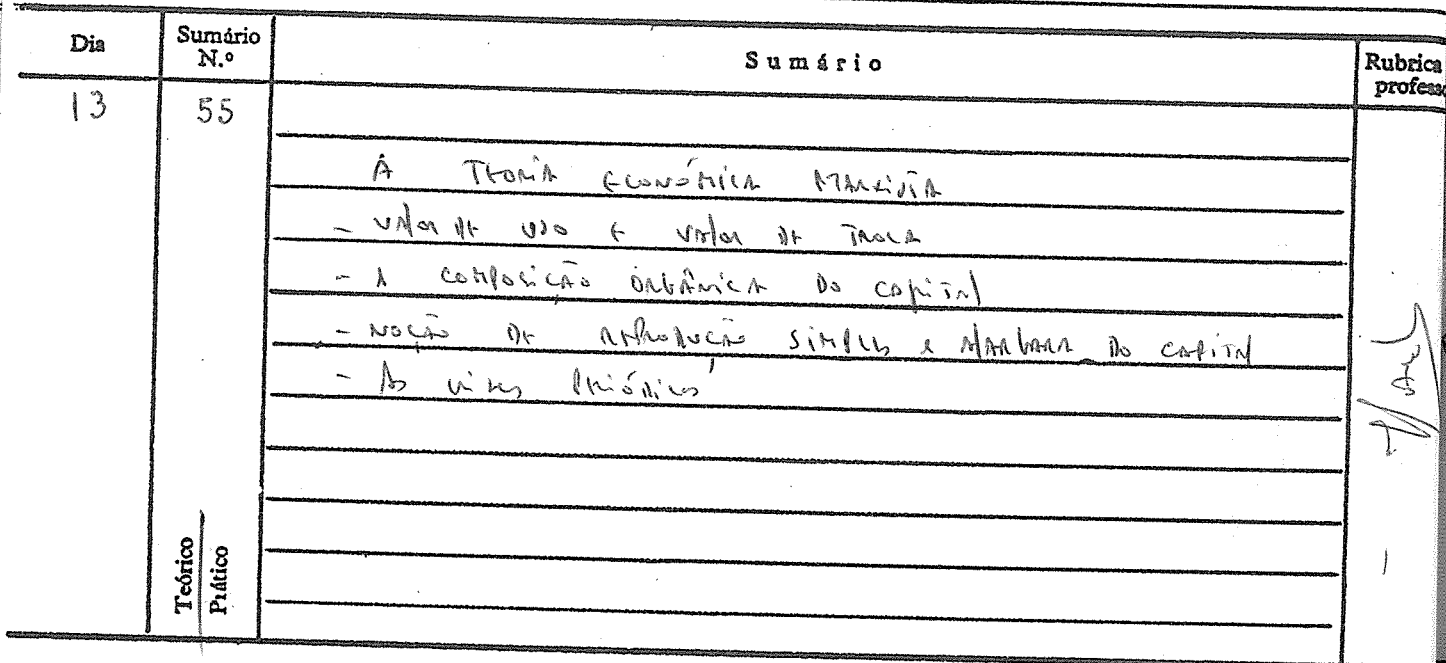 Dia Sumário N.º Sumário Rubrica profess
13 55
A TEORIA ECONÓMICA MARXISTA
- VALOR DE USO E VALOR DE TROCA
- A COMPOSIÇÃO ORGÂNICA DO CAPITAL
- NOÇÃO DE REPRODUÇÃO SIMPLES E ALARGADA DO CAPITAL
- AS CRISES PERIÓDICAS
Teórico
Prático